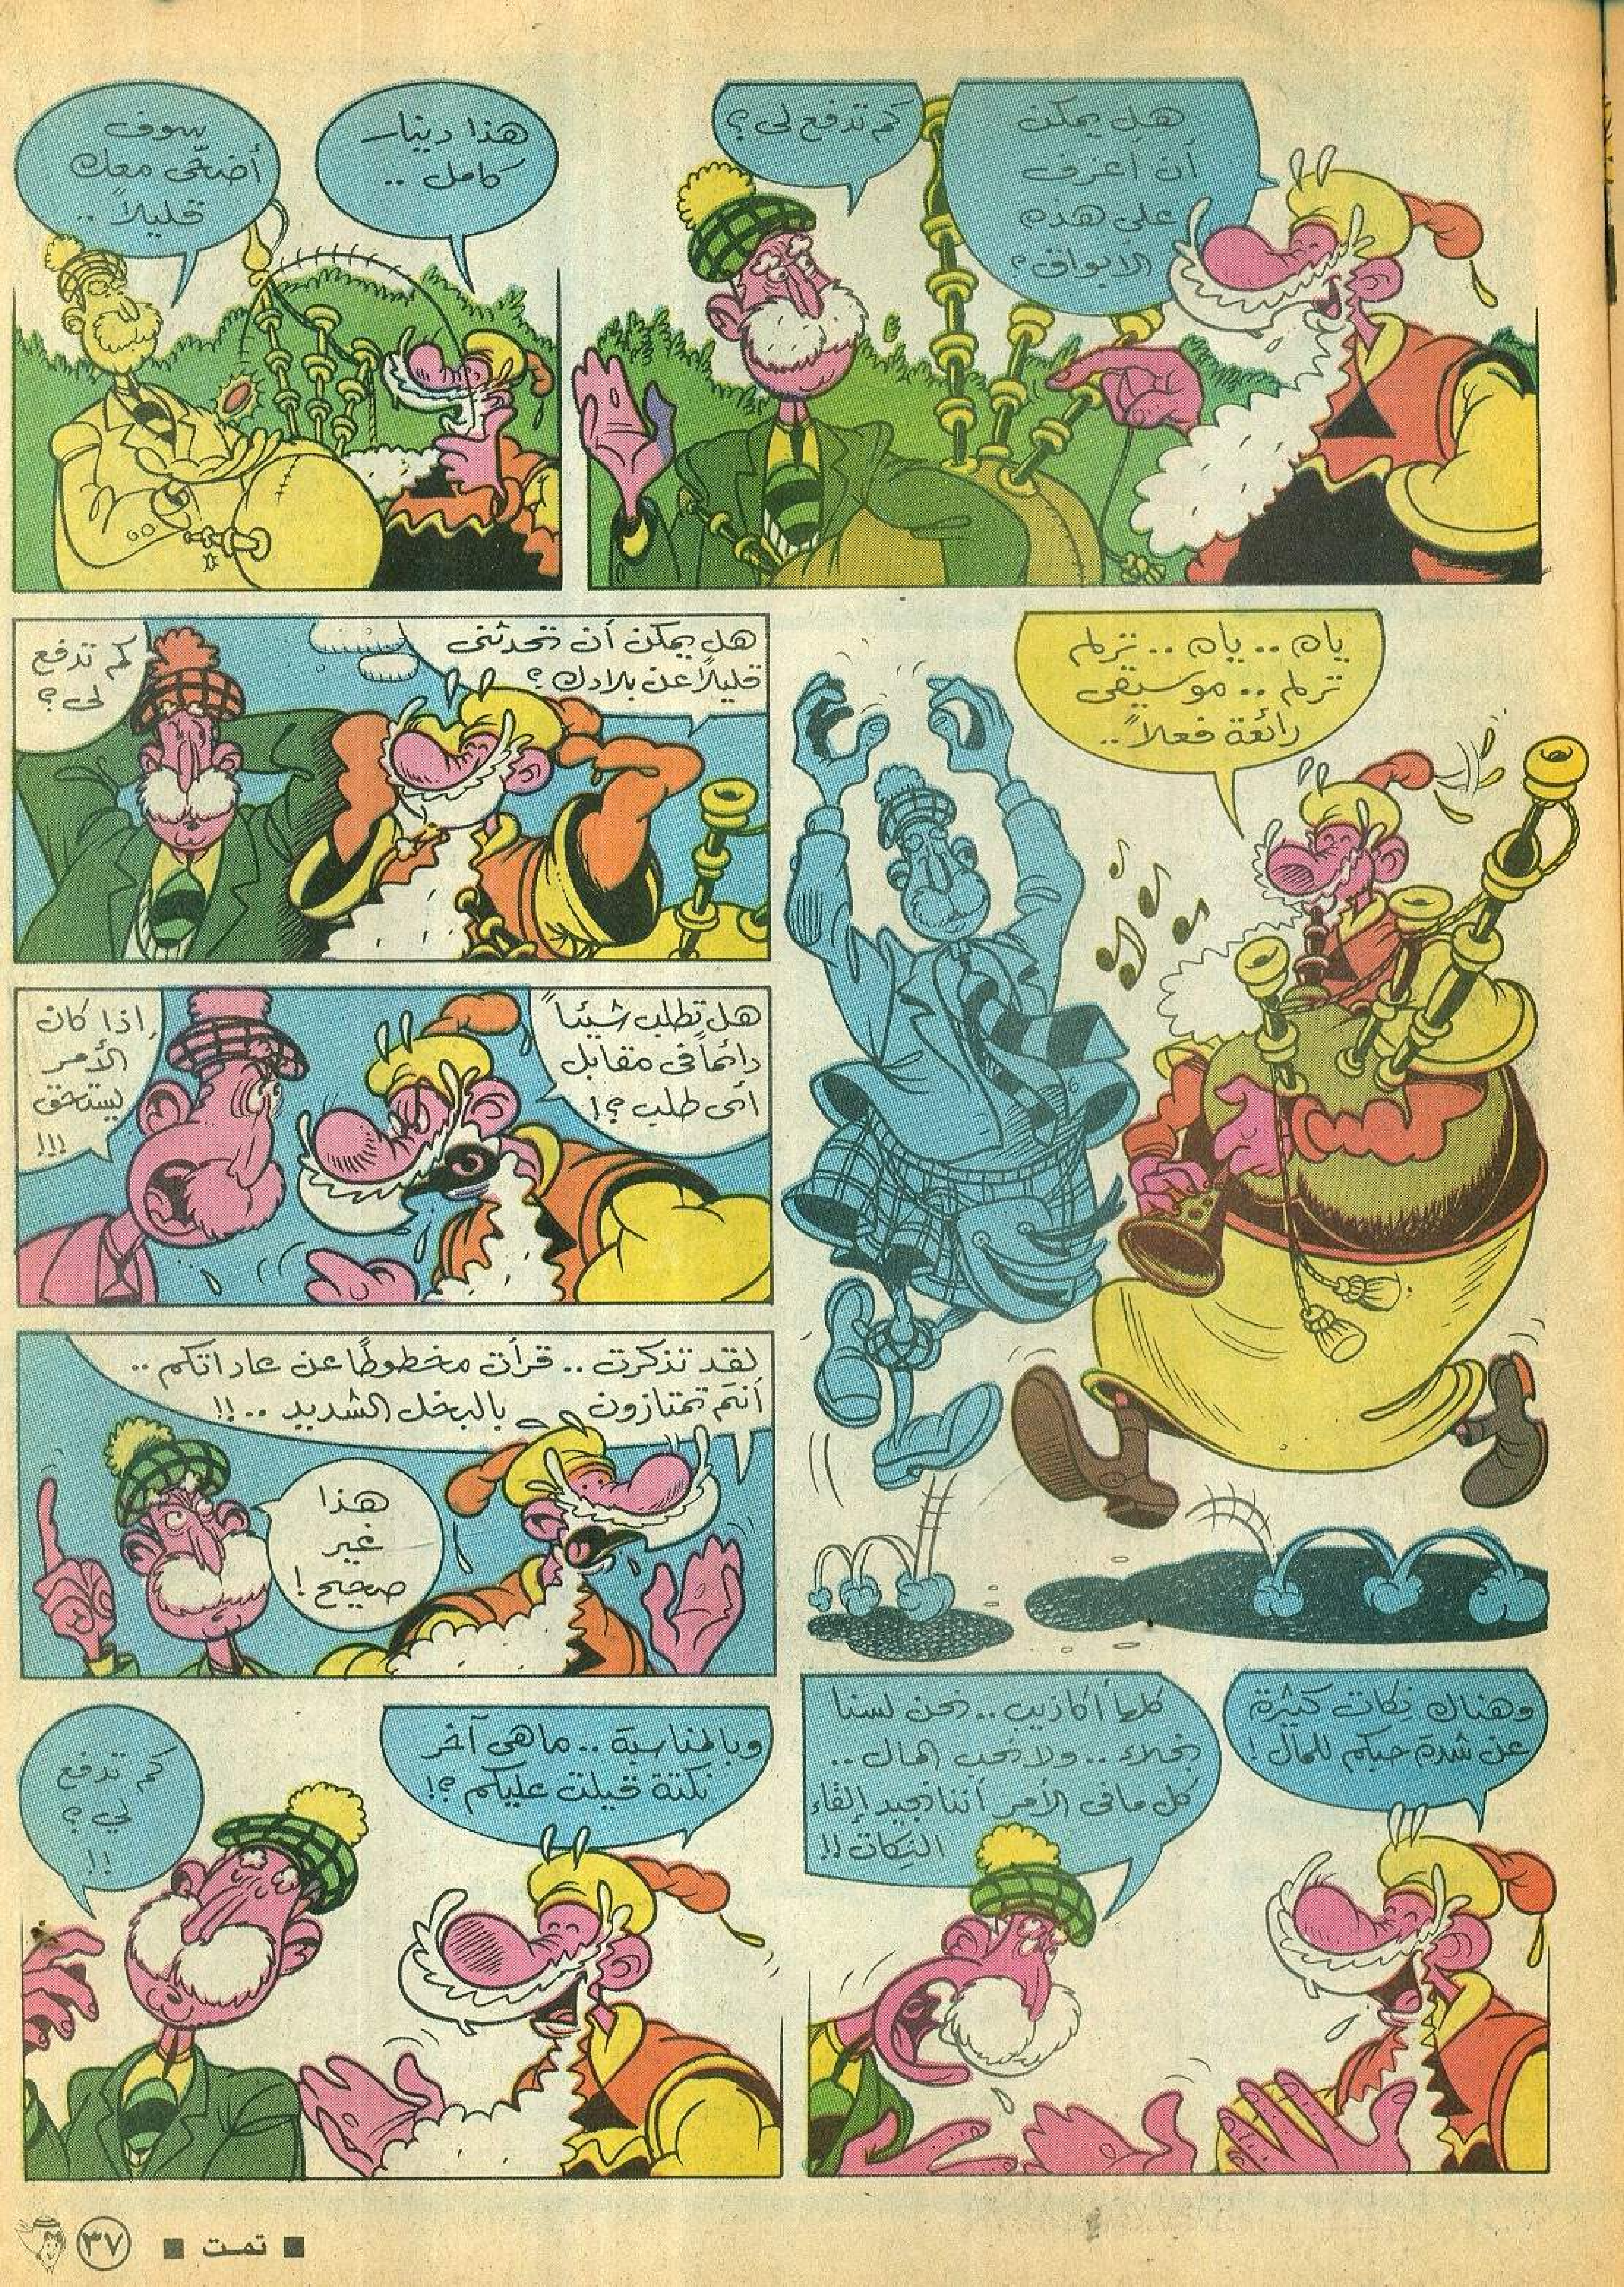 هل يمكن
أن أعزف
على هذه
الأبواق؟
كم تدفع لى؟
هذا دينار
كامل ..
سوف
أضحّى معك
قليلاً ..
ياه .. ياه .. ترلم
ترلم .. موسيقى
رائعة فعلاً ..
هل يمكن أن تحدثنى
قليلاً عن بلادك ؟
كم تدفع
لى ؟
هل تطلب شيئاً
دائماً فى مقابل
أى طلب ؟!
إذا كان
الأمر
يستحق
!!!
لقد تذكرت .. قرأت مخطوطًا عن عاداتكم ..
أنتم تمتازون بالبخل الشديد .. !!
هذا
غير
صحيح !
وهناك نكات كثيرة
عن شدة حبكم للمال !
كلها أكاذيب .. نحن لسنا
بخلاء .. ولا نحب المال ..
كل ما فى الأمر أننا نجيد إلقاء
النكات !!
وبالمناسبة .. ما هى آخر
نكتة قيلت عليكم ؟!
كم تدفع
لي ؟
!!
■ تمت ■
٣٧